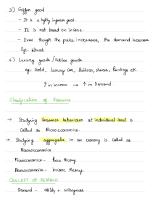 3) Giffen good
- It is a highly inferior good
- It is not based on income.
- Even though the price increases, the demand increases
Eg: Bread.
4) Luxury goods / Veblen goods
eg: Gold, Luxury Car, Perfume, shares, Paintings etc.
↑ in income → ↑ in Demand
Classification of Economics
→ Studying consumer behaviour at individual level is
called as Microeconomics.
→ Studying aggregate in an economy is called as
Macroeconomics
Microeconomics - Price theory
Macroeconomics - Income theory.
CONCEPT OF DEMAND
Demand - ability + willingness